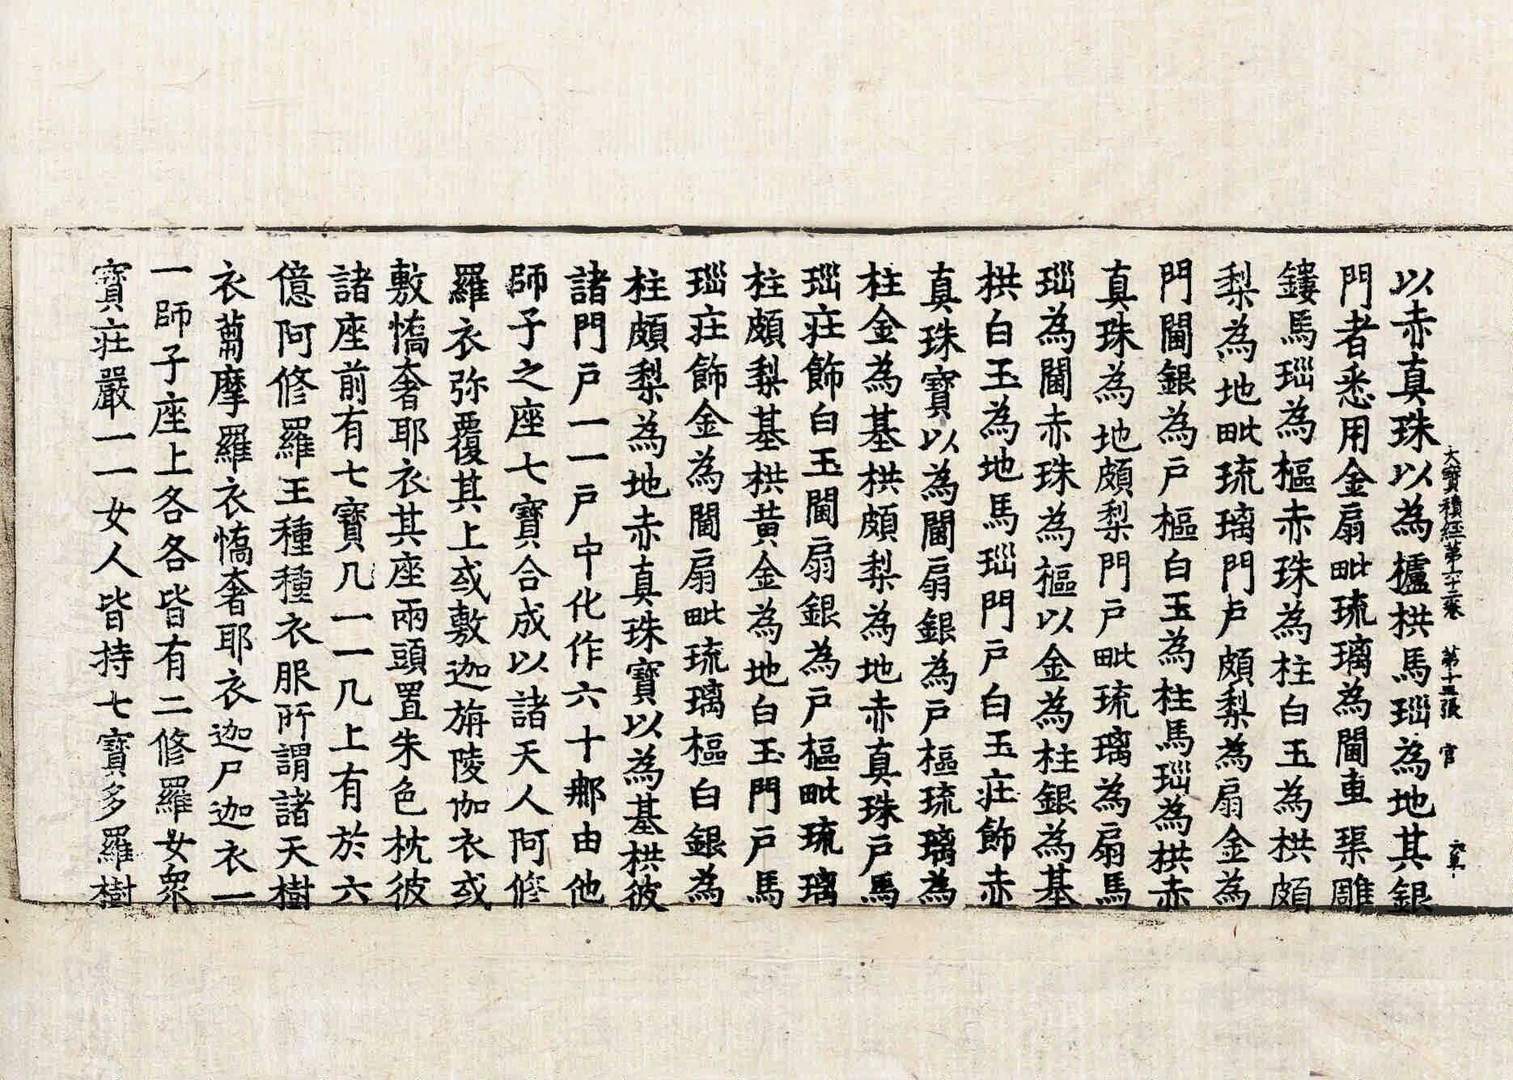 以赤真珠以為櫨栱馬瑙為地其銀
大寶積經第六十二卷 第十五張 官
門者悉用金扇毗琉璃為閫車𤦲雕
鏤馬瑙為樞赤珠為柱白玉為栱頗
梨為地毗琉璃門戶頗梨為扇金為
門閫銀為戶樞白玉為柱馬瑙為栱赤
真珠為地頗梨門戶毗琉璃為扇馬
瑙為閫赤珠為樞以金為柱銀為基
栱白玉為地馬瑙門戶白玉莊飾赤
真珠寶以為閫扇銀為戶樞琉璃為
柱金為基栱頗梨為地赤真珠戶馬
瑙莊飾白玉閫扇銀為戶樞毗琉璃
柱頗梨基栱黃金為地白玉門戶馬
瑙莊飾金為閫扇毗琉璃樞白銀為
柱頗梨為地赤真珠寶以為基栱彼
諸門戶一一戶中化作六十那由他
師子之座七寶合成以諸天人阿修
羅衣弥覆其上或敷迦旃陵伽衣或
敷憍奢耶衣其座兩頭置朱色枕彼
諸座前有七寶几一一几上有於六
億阿修羅王種種衣服所謂諸天樹
衣蒭摩羅衣憍奢耶衣迦尸迦衣一
一師子座上各各皆有二修羅女眾
寶莊嚴一一女人皆持七寶多羅樹